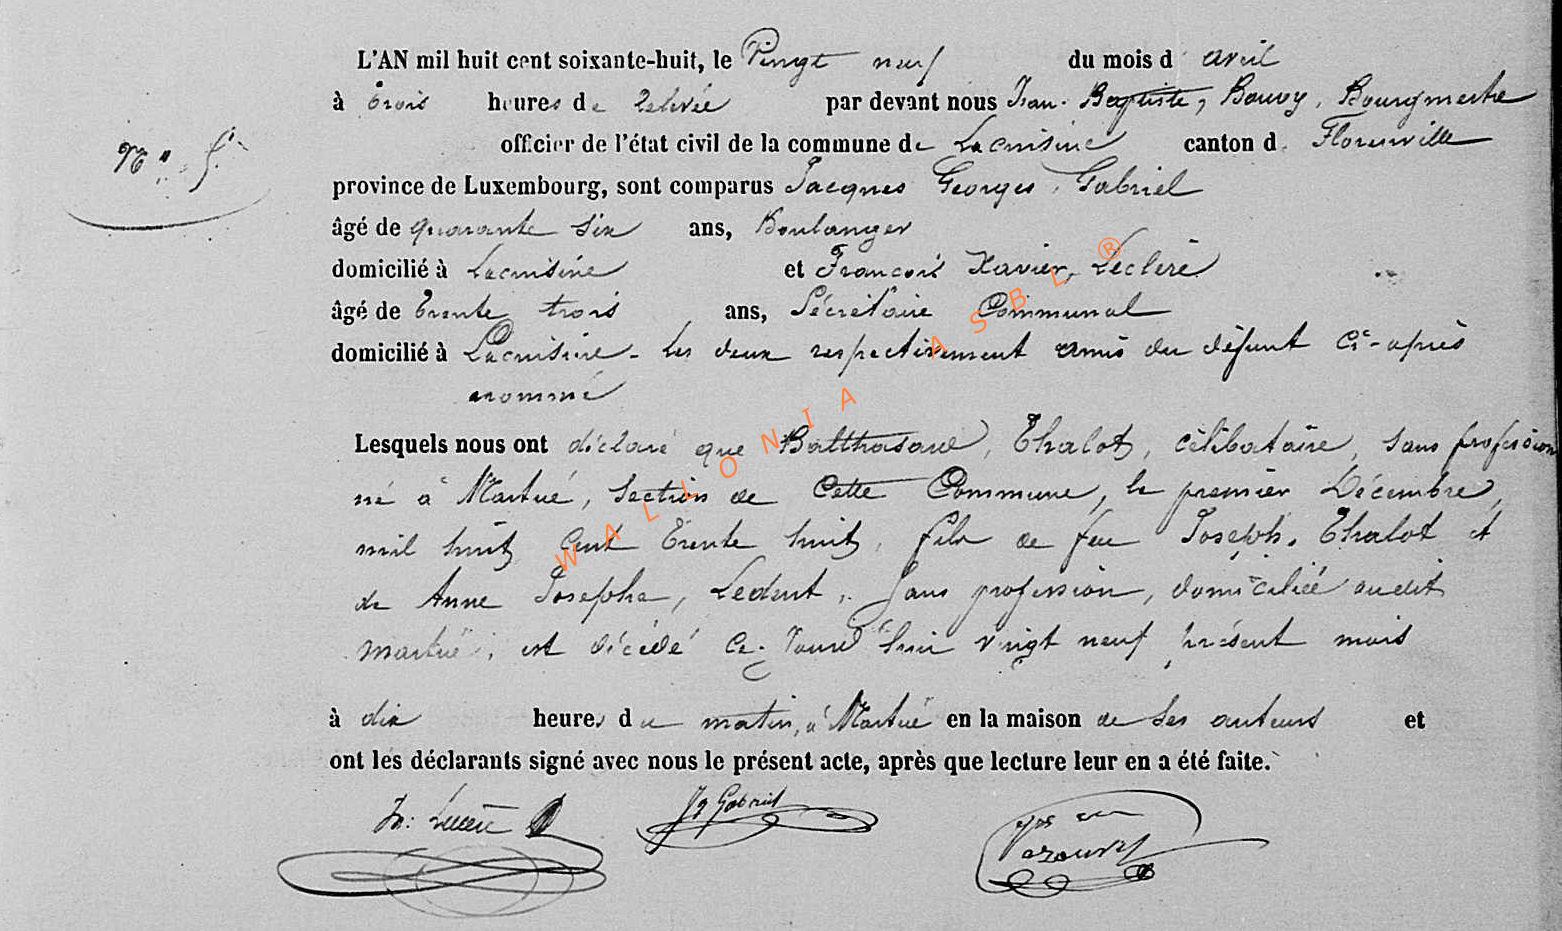 L'AN mil huit cent soixante-huit, le Vingt neuf du mois d'avril
à trois heures de relevée par devant nous Jean-Baptiste, Bouvy, Bourgmestre
officier de l'état civil de la commune de Lacuisine canton de Florenville
N° 5.
province de Luxembourg, sont comparus Jacques Georges Gabriel
âgé de quarante six ans, Boulanger
domicilié à Lacuisine et François Xavier, Leclère
âgé de trente trois ans, Sécrétaire Communal
domicilié à Lacuisine - les deux respectivement amis du défunt ci-après
nommé
Lesquels nous ont déclaré que Balthasare, Thalot, célibataire, sans profession
né à Martué, section de cette Commune, le premier Décembre,
mil huit cent trente huit, fils de feu Joseph, Thalot et
de Anne Josephe, Ledent, sans profession, domiciliée audit
Martué, est décédé ce jourd'hui vingt neuf présent mois
à dix heures du matin, à Martué en la maison de ses auteurs et
ont les déclarants signé avec nous le présent acte, après que lecture leur en a été faite.
Jg Gabriel
WALLONIA ASBL ®